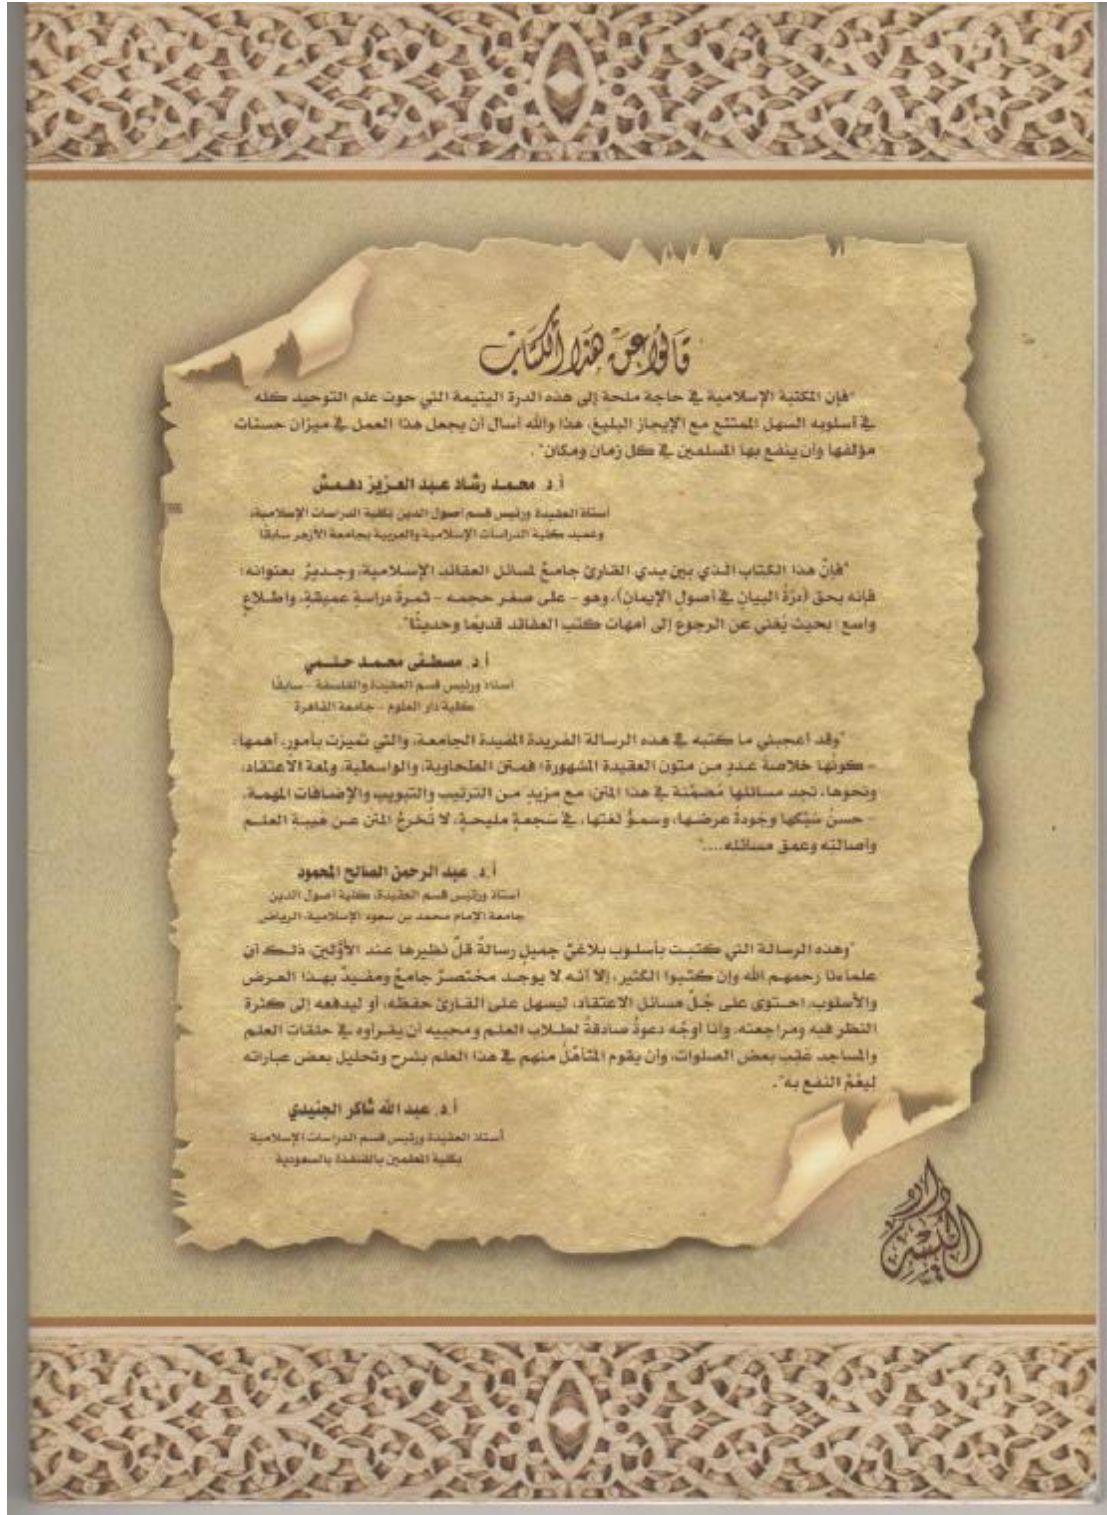 قَالُوا عَنْ هَذَا الكِتَابِ
"فإن المكتبة الإسلامية في حاجة ملحة إلى هذه الدرة اليتيمة التي حوت علم التوحيد كله
في أسلوبه السهل الممتنع مع الإيجاز البليغ، هذا والله أسأل أن يجعل هذا العمل في ميزان حسنات
مؤلفها وأن ينفع بها المسلمين في كل زمان ومكان".
أ.د. محمد رشاد عبد العزيز دهمش
أستاذ العقيدة ورئيس قسم أصول الدين بكلية الدراسات الإسلامية،
وعميد كلية الدراسات الإسلامية والعربية بجامعة الأزهر سابقًا
"فإنّ هذا الكتاب الذي بين يدي القارئ جامعٌ لمسائل العقائد الإسلامية، وجديرٌ بعنوانه؛
فإنه بحق (درّةُ البيانِ في أصولِ الإيمانِ)، وهو - على صغر حجمه - ثمرةُ دراسةٍ عميقةٍ، واطلاعٍ
واسع؛ بحيث يُغني عن الرجوع إلى أمهات كتب العقائد قديمًا وحديثًا".
أ.د. مصطفى محمد حلمي
أستاذ ورئيس قسم العقيدة والفلسفة - سابقًا
كلية دار العلوم - جامعة القاهرة
"وقد أعجبني ما كتبه في هذه الرسالة الفريدة المفيدة الجامعة، والتي تميزت بأمور، أهمها:
- كونُها خلاصةُ عددٍ من متون العقيدة المشهورة؛ فمتن الطحاوية، والواسطية، ولمعة الاعتقاد،
ونحوها، تجد مسائلها مُضمَّنة في هذا المتن؛ مع مزيدٍ من الترتيب والتبويب والإضافات المهمة.
- حسنُ سَبْكها وجَودةُ عرضها، وسموُّ لغتها، في سَجعةٍ مليحةٍ، لا تُخرجُ المتن عن هيبة العلم
وأصالته وعمق مسائله...."
أ.د. عبد الرحمن الصالح المحمود
أستاذ ورئيس قسم العقيدة، كلية أصول الدين
جامعة الإمام محمد بن سعود الإسلامية، الرياض
"وهذه الرسالة التي كتبت بأسلوب بلاغيٍّ جميلٍ رسالةٌ قلّ نظيرها عند الأوَّلين، ذلك أن
علماءنا رحمهم الله وإن كتبوا الكثير، إلا أنه لا يوجد مختصرٌ جامعٌ ومفيدٌ بهذا العرض
والأسلوب، احتوى على جُلِّ مسائل الاعتقاد، ليسهل على القارئ حفظه، أو ليدفعه إلى كثرة
النظر فيه ومراجعته، وأنا أوجّه دعوةً صادقةً لطلاب العلم ومحبيه أن يقرأوه في حلقات العلم
والمساجد عَقِبَ بعض الصلوات، وأن يقوم المتأهّلُ منهم في هذا العلم بشرح وتحليل بعض عباراته
ليعُمّ النفع به".
أ.د. عبد الله شاكر الجنيدي
أستاذ العقيدة ورئيس قسم الدراسات الإسلامية
بكلية المعلمين بالقنفذة بالسعودية
دار اليسر